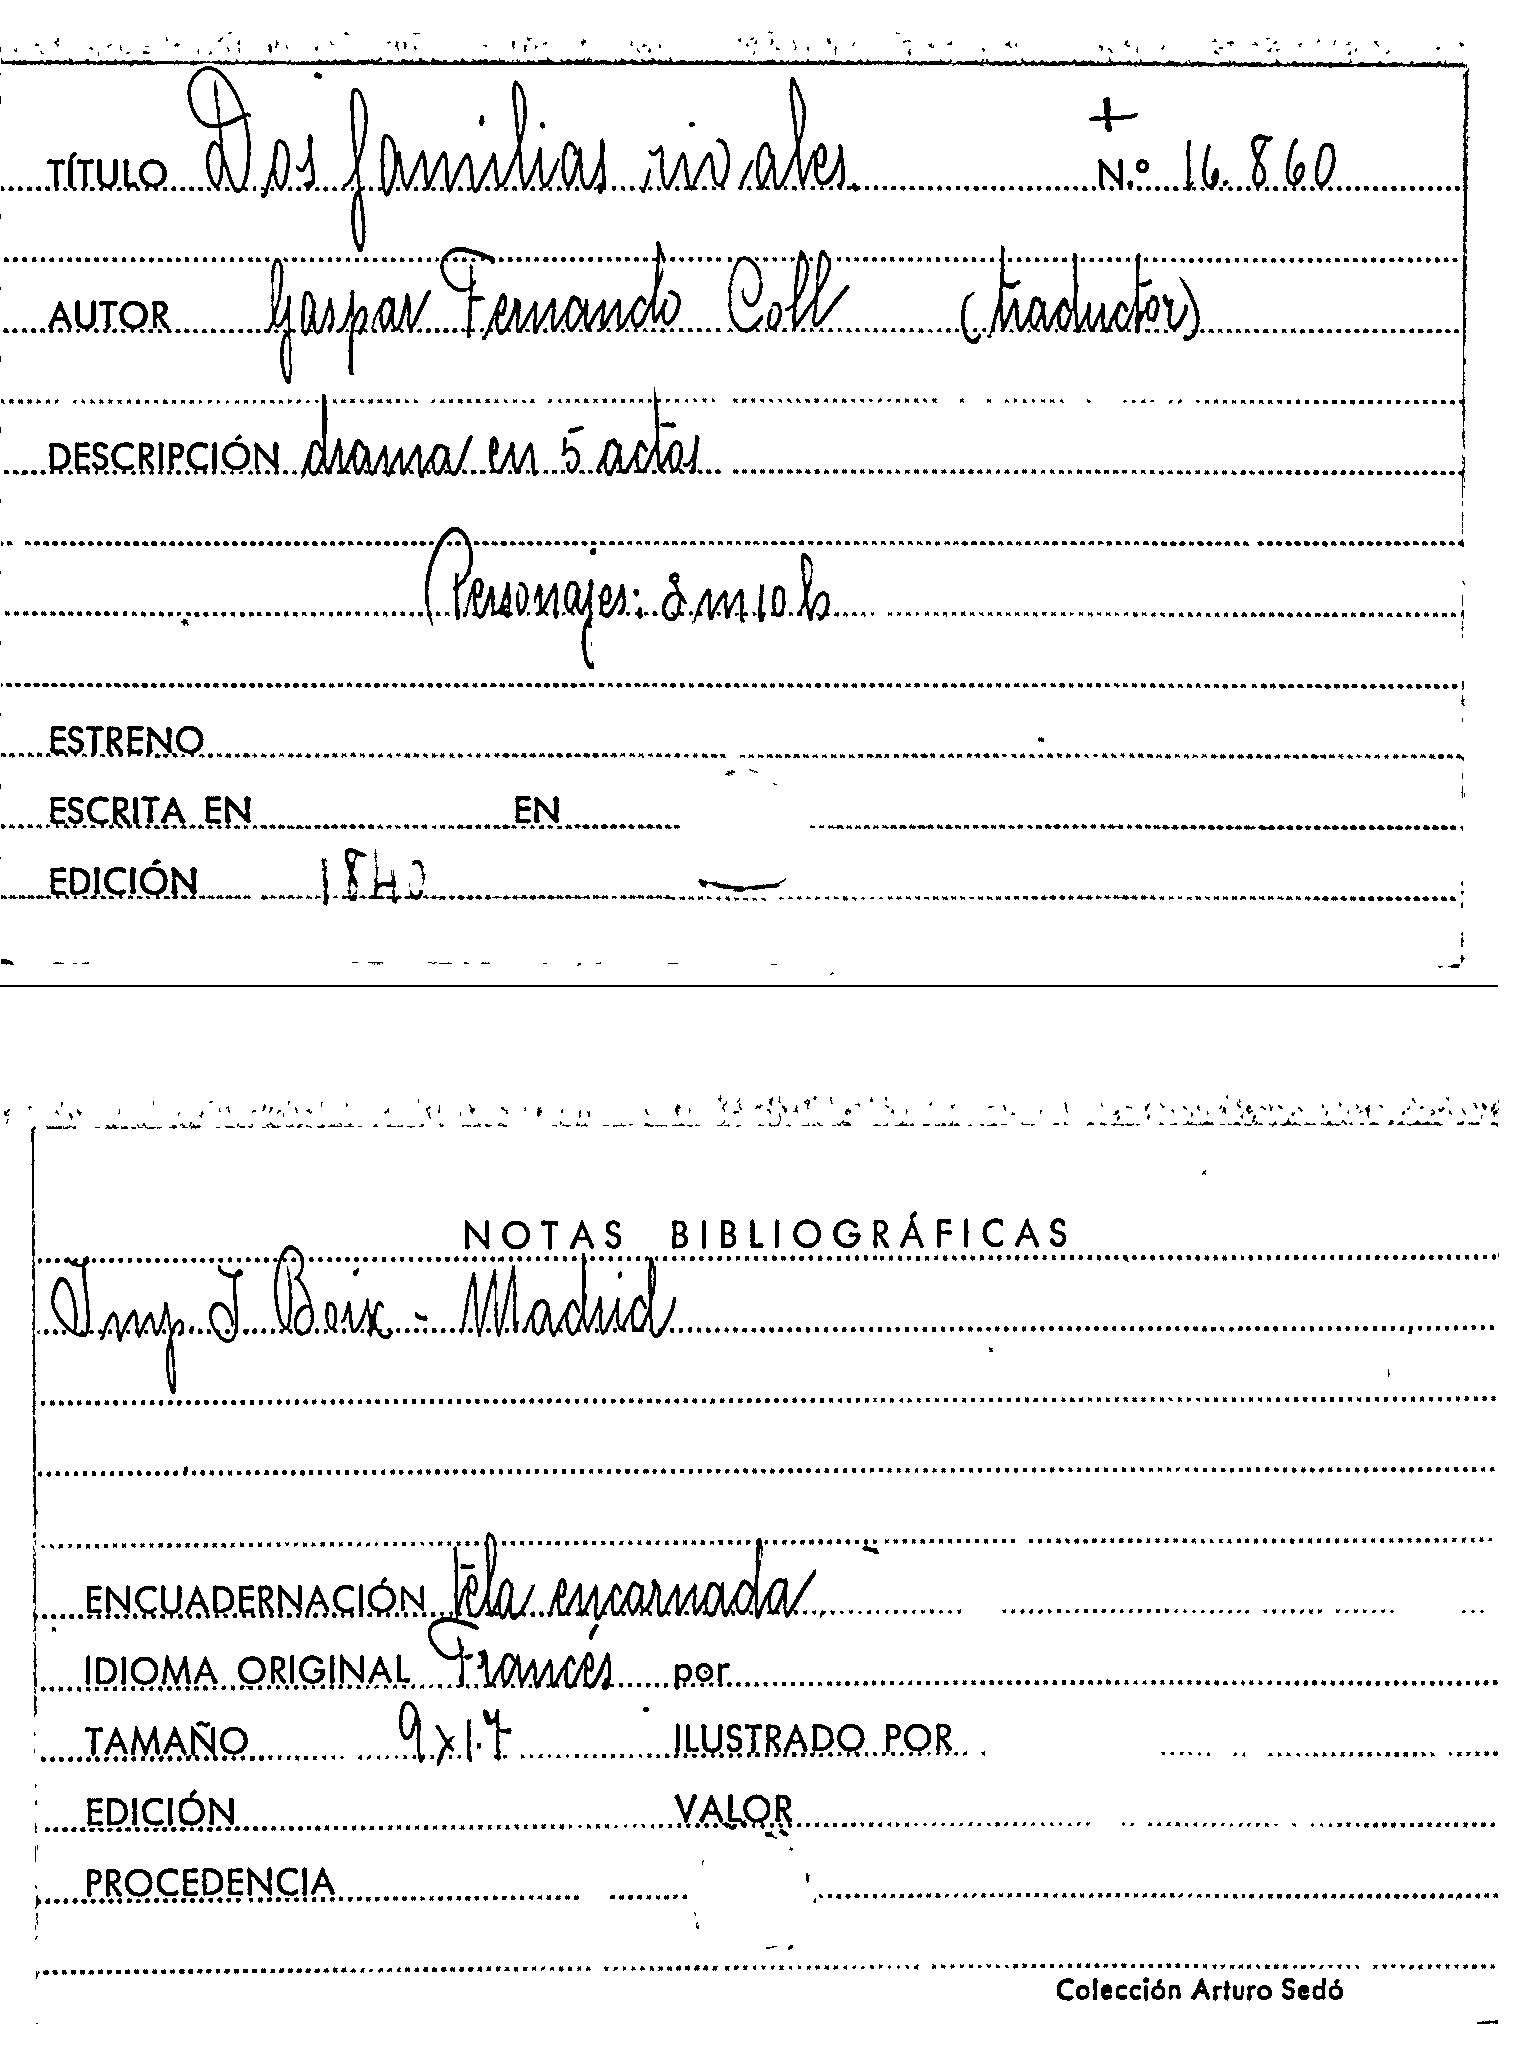 +
TÍTULO Dos familias rivales. N.º 16.860
AUTOR Gaspar Fernando Coll (traductor)
DESCRIPCIÓN drama en 5 actos
Personajes: 8 m 10 h
ESTRENO
ESCRITA EN EN
EDICIÓN 1840
NOTAS BIBLIOGRÁFICAS
Imp. I Boix - Madrid
ENCUADERNACIÓN tela encarnada
IDIOMA ORIGINAL Francés por
TAMAÑO 9x17 ILUSTRADO POR
EDICIÓN VALOR
PROCEDENCIA
Colección Arturo Sedó